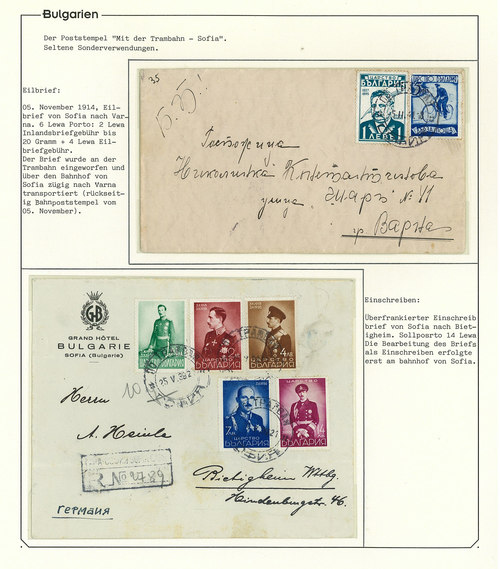 Bulgarien
Der Poststempel "Mit der Trambahn - Sofia".
Seltene Sonderverwendungen.
Eilbrief:
05. November 1914, Eil-
brief von Sofia nach Var-
na. 6 Lewa Porto: 2 Lewa
Inlandsbriefgebühr bis
20 Gramm + 4 Lewa Eil-
briefgebühr.
Der Brief wurde an der
Trambahn eingeworfen und
über den Bahnhof von
Sofia zügig nach Varna
transportiert (rückseit-
ig Bahnpoststempel vom
05. November).
ЦАРСТВО
БЪЛГАРИЯ
1 ЛЕВЪ
Госпожица
Николинка Константинова
улица "Шар" № 11
гр. Варна
Einschreiben:
Überfrankierter Einschreib
brief von Sofia nach Biet-
igheim. Sollporto 14 Lewa
Die Bearbeitung des Briefs
als Einschreiben erfolgte
erst am bahnhof von Sofia.
GB
GRAND HÔTEL
BULGARIE
SOFIA (Bulgarie)
ЦАРСТВО
БЪЛГАРИЯ
ЦАРСТВО
БЪЛГАРИЯ
25 V 39
10
Herrn
A. Heinle
Bietigheim Wttbg.
Hindenburgstr. 46.
R. No 2789
Германия